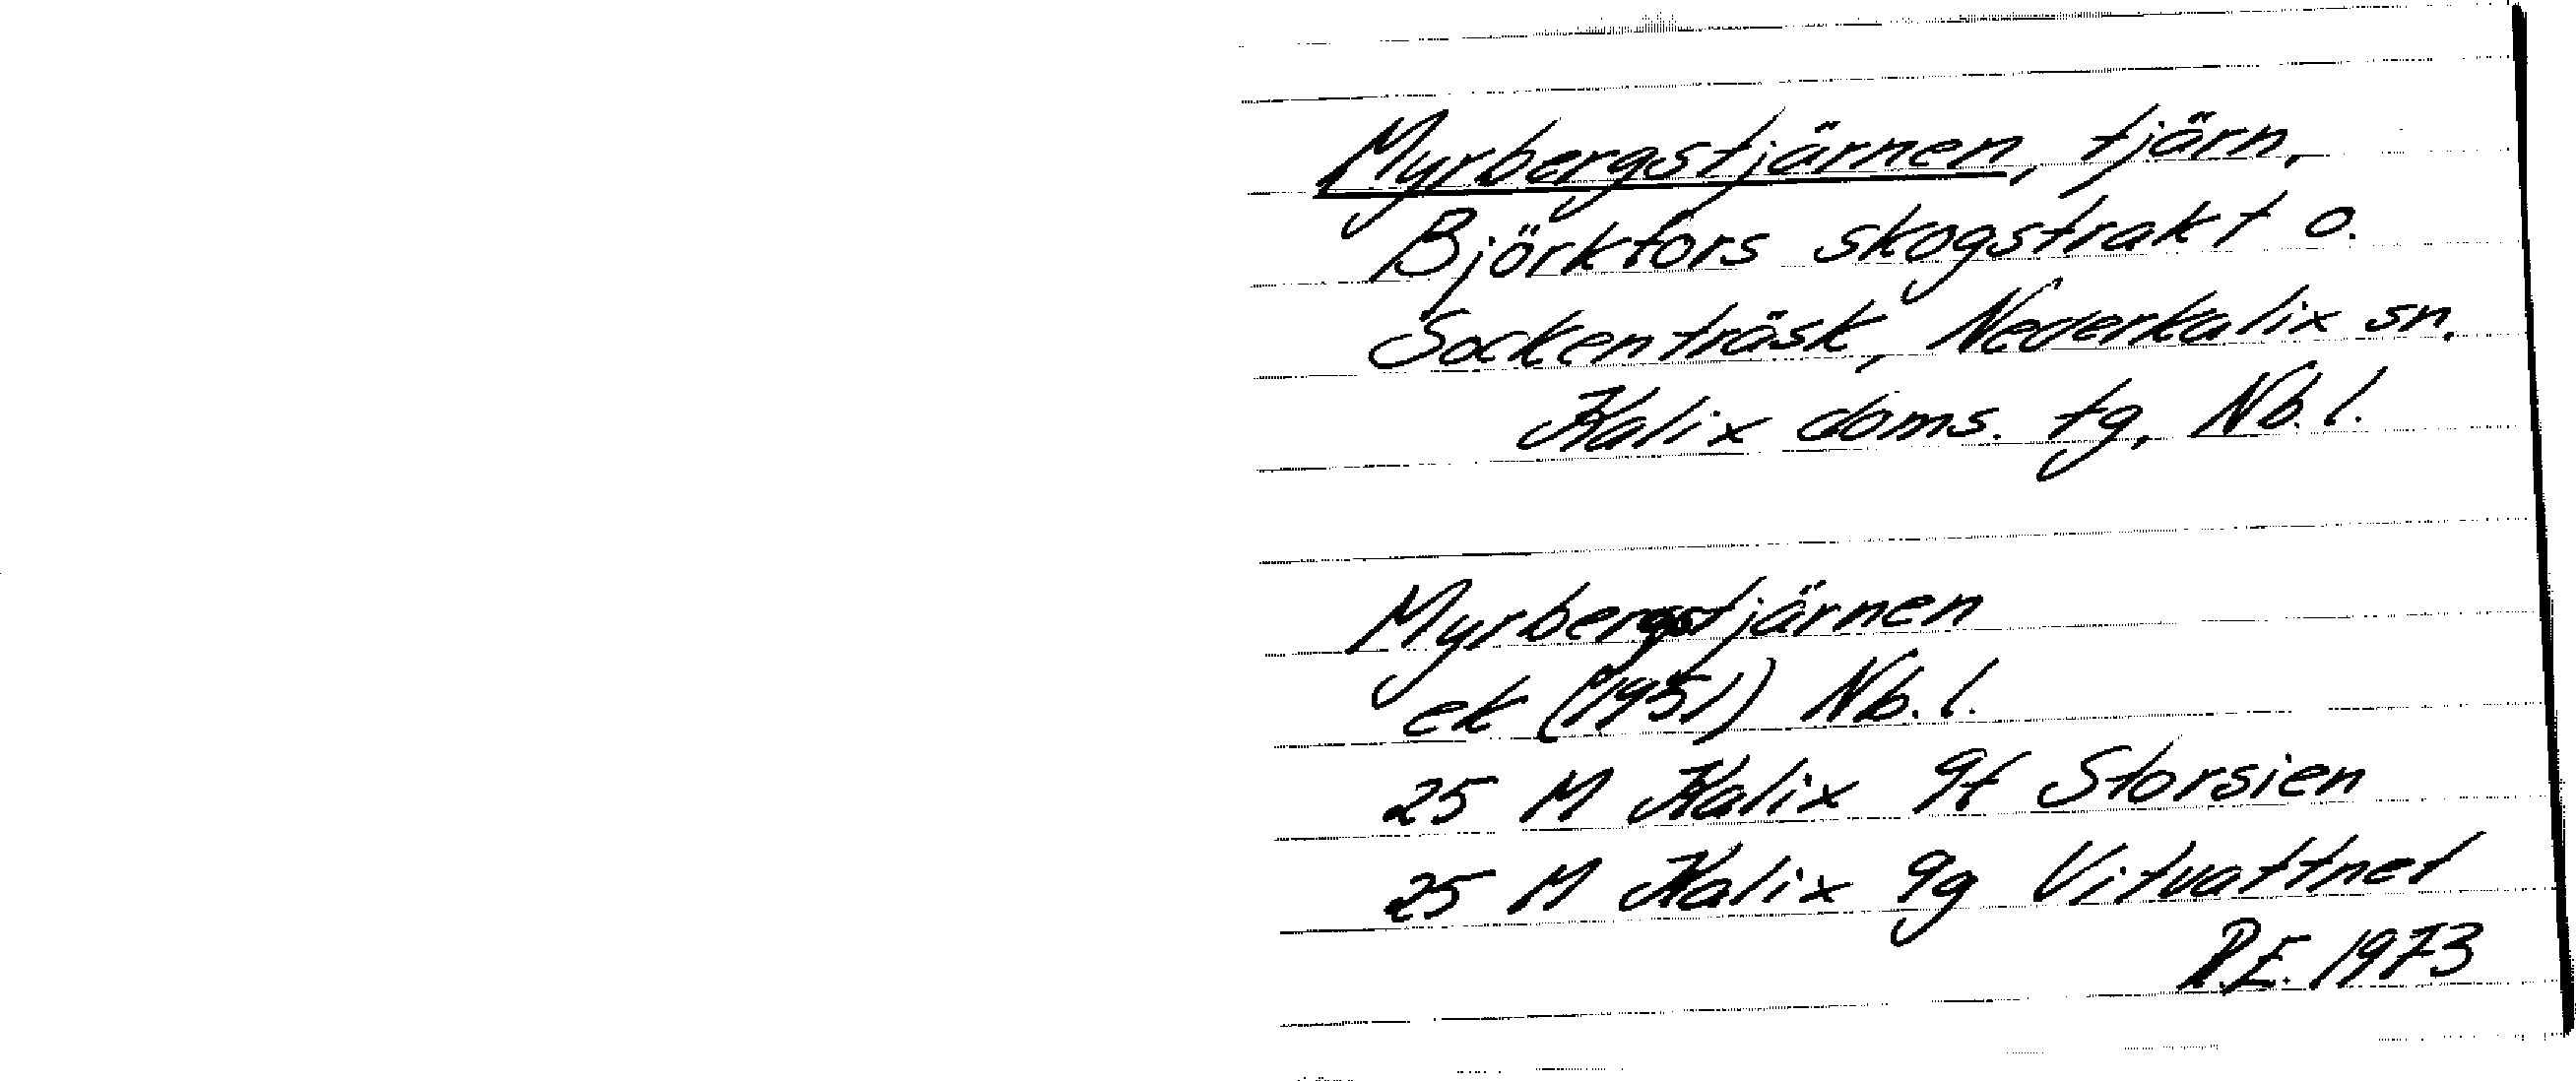 Myrbergstjärnen, tjärn,
Björkfors skogstrakt o.
Sockenträsk, Nederkalix sn.
Kalix doms. tg, Nb. l.
Myrbergstjärnen
ek (1951) Nb. l.
25 M Kalix 9f Storsien
25 M Kalix 9g Vitvattnet
R.E. 1973